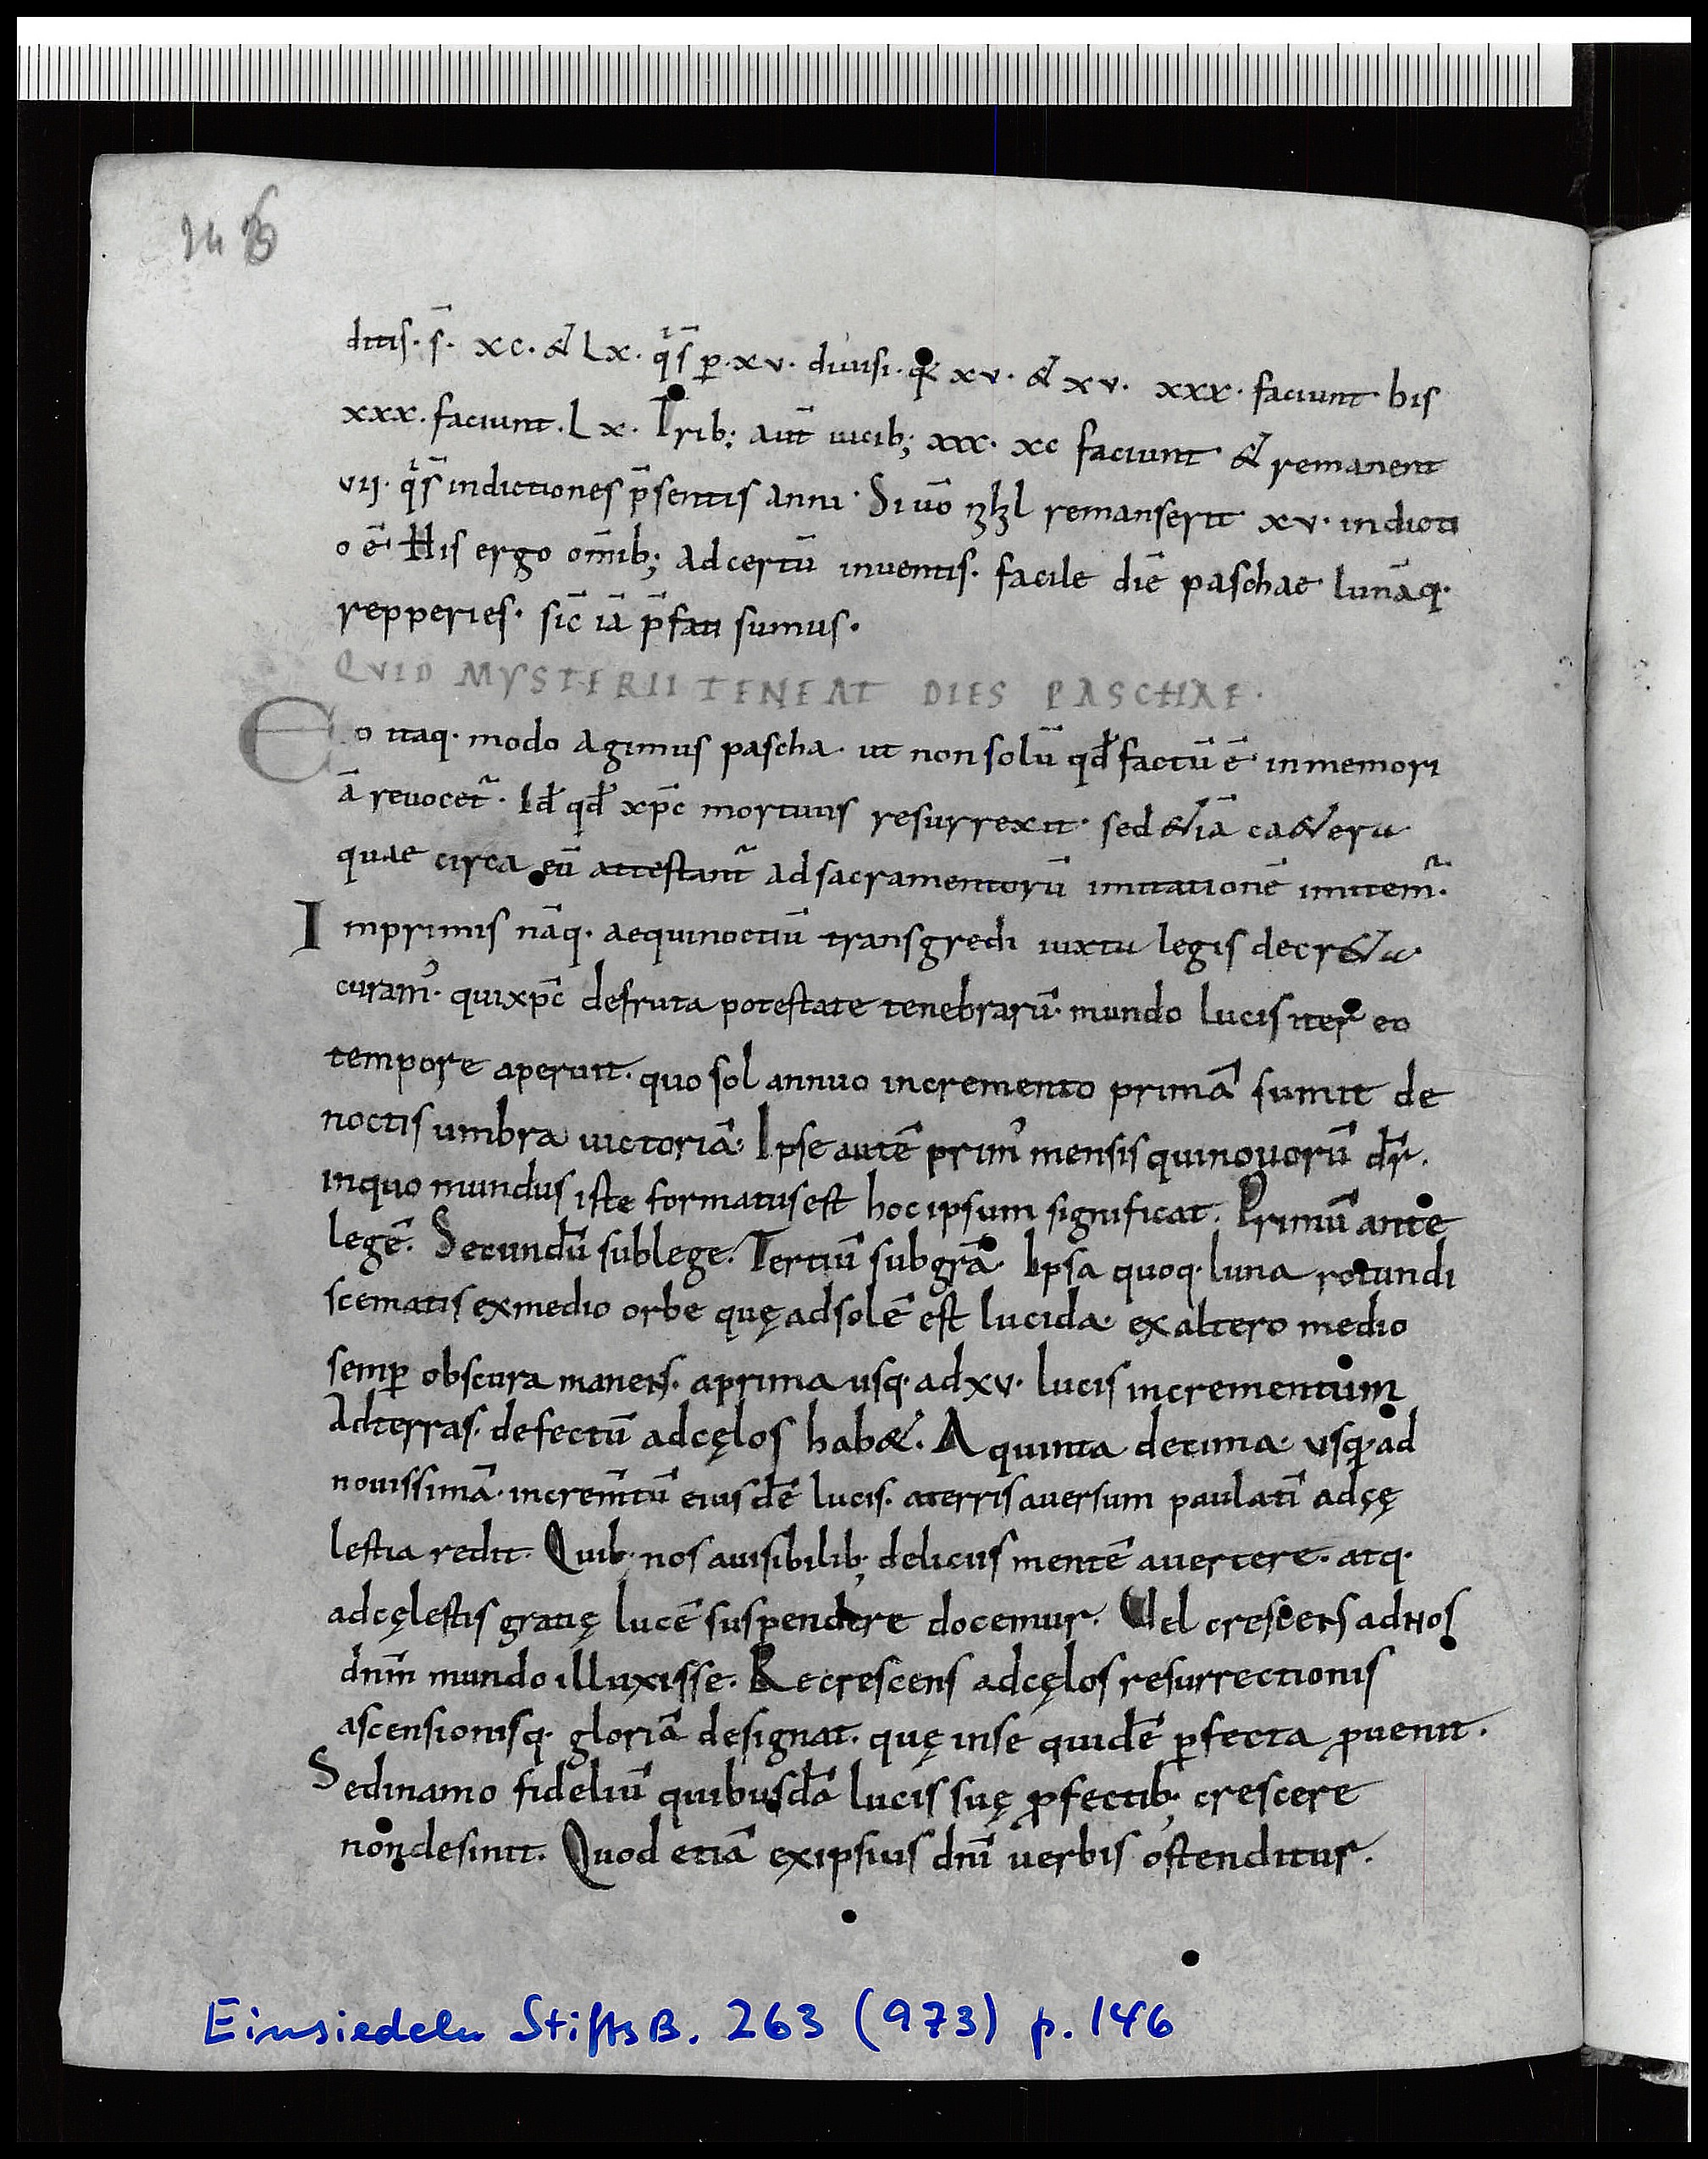 146
ditis. s̄. xc. & Lx. q̄s p̱. xv. diuisi. q̣ xv. & xv. xxx. faciunt bis
xxx. faciunt. Lx. Trib; aut̄ uicib; xxx. xc faciunt & remanent
vij. q̄s indictiones p̄sentis anni. Si uō remanserit xv. indicti
o ē. His ergo om̄ib; ad certū inuentis. facile diē paschae lunāq.
repperies. sic̄ iā p̄fati sumus.
QVID MYSTERII TENEAT DIES PASCHAE.
Eo itaq. modo agimus pascha. ut non solū qd̄ factū ē in memori
ā reuocet᷑. Id̄ qd̄ xp̄c mortuus resurrexit. sed &iā ca&era
quae circa eū attestant᷑ ad sacramentorū imitationē imitem᷑.
Imprimis nāq. aequinoctiū transgredi iuxta legis decr&a
curam᷒. qui xp̄c defruta potestate tenebrarū. mundo lucis iter eo
tempore aperuit. quo sol annuo incremento primā sumit de
noctis umbra uictoriā. Ipse autē prim᷒ mensis qui nouorū dr̄.
in quo mundus iste formatus est hoc ipsum significat. Primū ante
legē. Secundū sub lege. Tertiū sub grā. Ipsa quoq. luna rotundi
scematis ex medio orbe quę ad solē est lucida. ex altero medio
semp̱ obscura manens. a prima usq. ad xv. lucis incrementum
Ad terras. defectū ad cęlos hab&. A quinta decima. usq. ad
nouissimā. increm̄tū eiusdē lucis. a terris auersum paulatī ad cę
lestia redit. Quib; nos a uisibilib; deliciis mentē auertere. atq.
ad cęlestis gratię lucē suspendere docemur. Vel crescens ad nos
dn̄m mundo illuxisse. Recrescens ad cęlos resurrectionis
ascensionisq. gloriā designat. quę in se quidē p̱fecta ꝓuenit.
Sed in amo fideliū quibusdā lucis suę ꝓfectib; crescere
non desinit. Quod etiā ex ipsius dn̄i uerbis ostenditur.
Einsiedeln StiftsB. 263 (973) p. 146